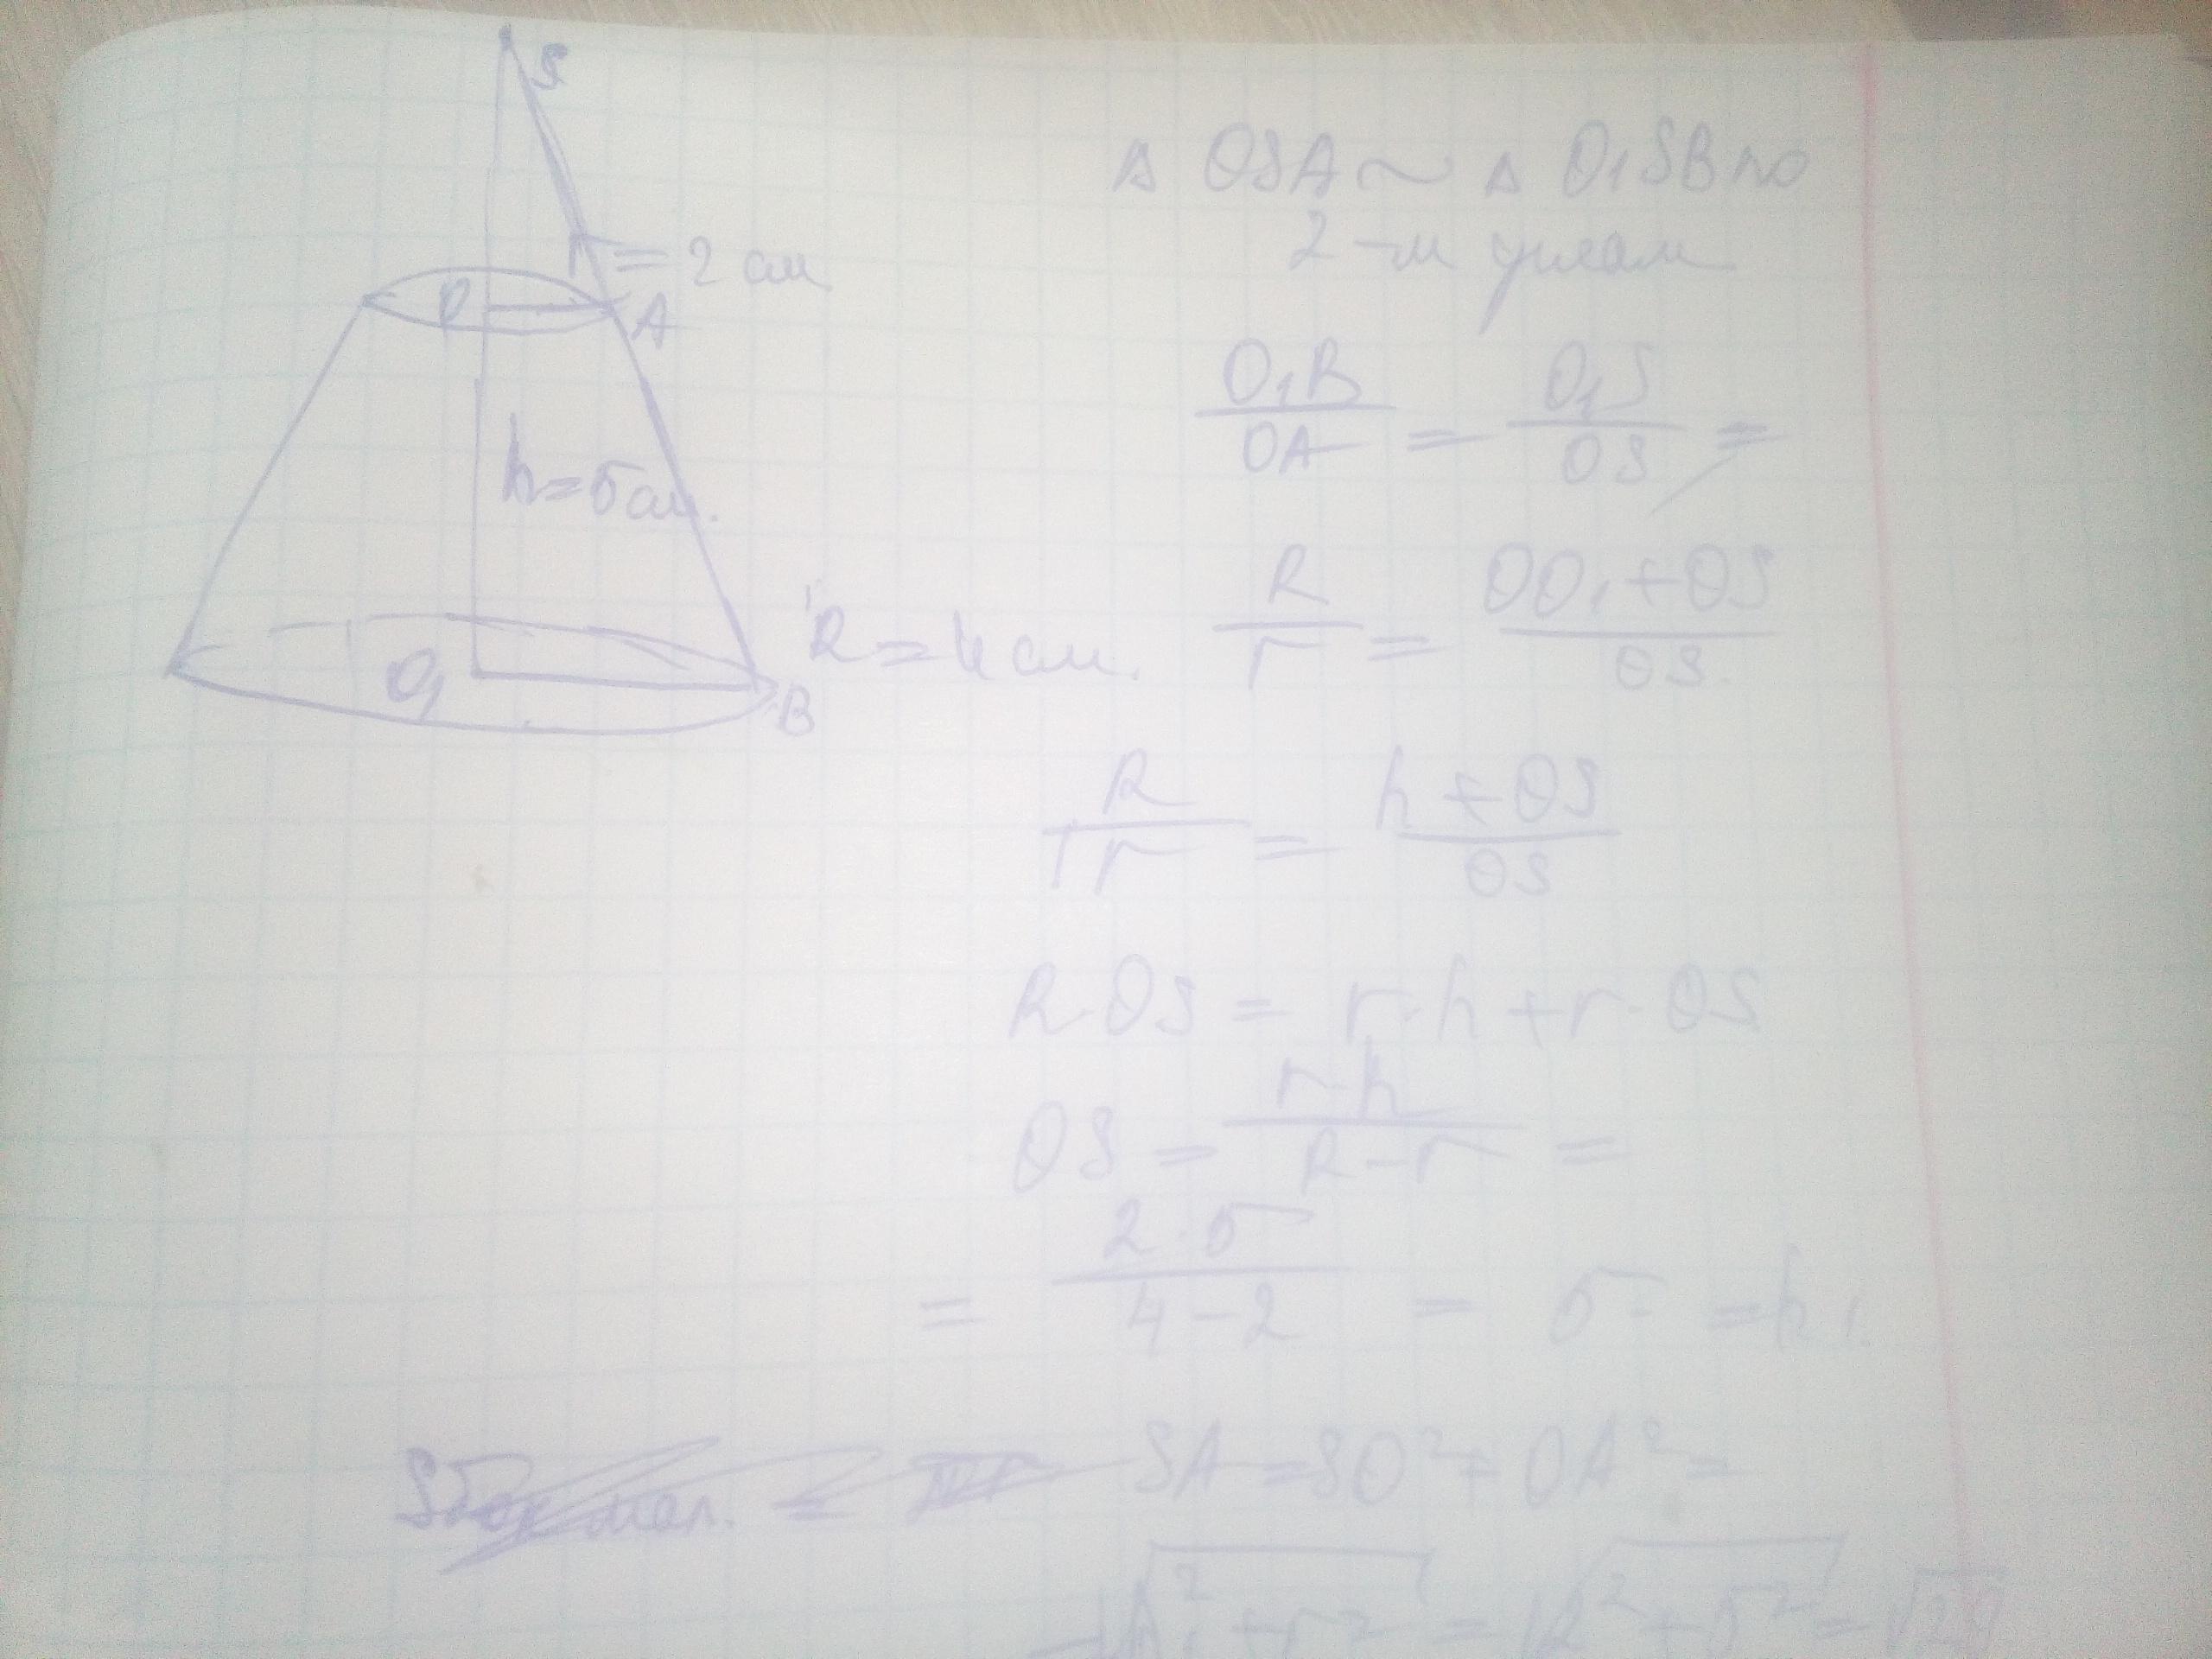 S
r = 2 см
O A
h = 5 см.
R = 4 см.
O₁ B
Δ OSA ~ Δ O₁SB по
2-м углам
O₁B / OA = O₁S / OS =
R / r = OO₁ + OS / OS.
R / r = h + OS / OS
R · OS = r · h + r · OS
OS = r · h / R - r =
= 2 · 5 / 4 - 2 = 5 = h₁.
SA = SO² + OA² =
= √h₁² + r² = √2² + 5² = √29